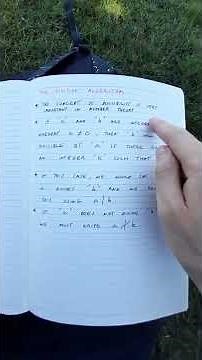 THE DIVISION ALGORITHM
• THE CONCEPT OF DIVISIBILITY IS VERY
IMPORTANT IN NUMBER THEORY
• IF "a" AND "b" ARE INTEGERS
a ≠ 0, THEN "b"
DIVISIBLE BY "a" IF THERE IS
AN INTEGER "k" SUCH THAT
• IN THIS CASE, WE WRITE
a DIVIDES "b" AND WE
THIS USING a/b
• IF "a" DOES NOT DIVIDE "b"
WE MUST WRITE a ∤ b